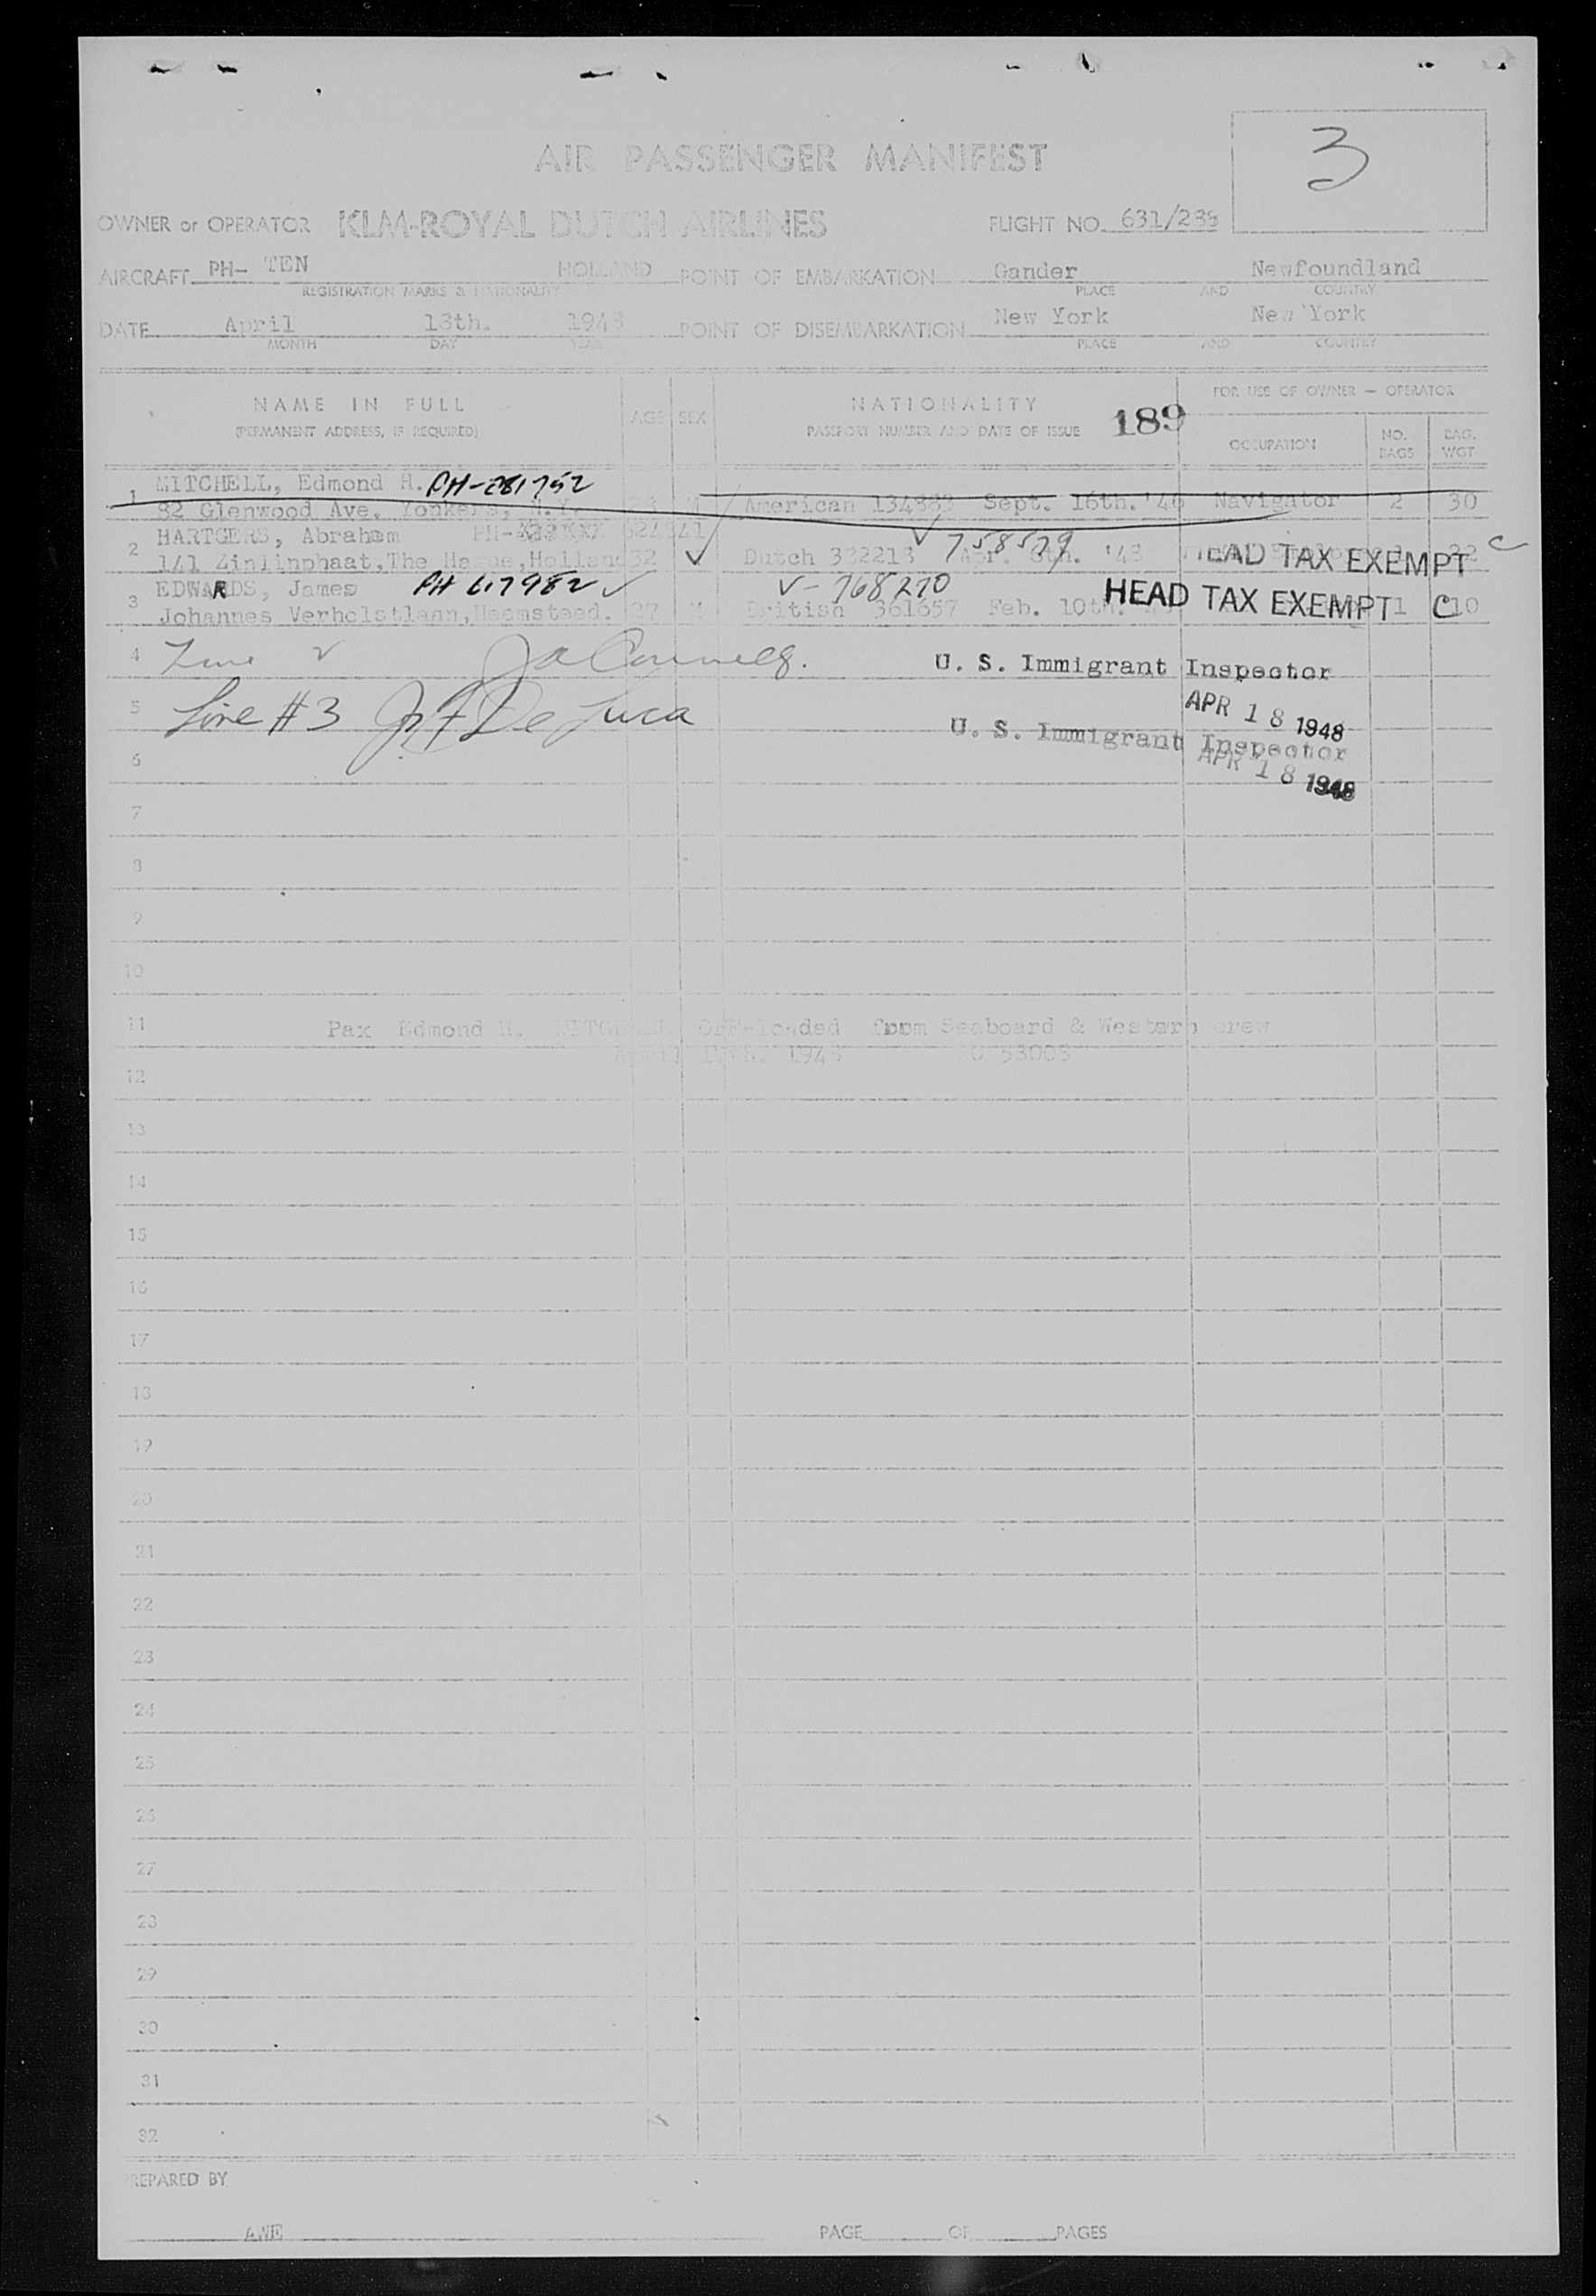 3
AIR PASSENGER MANIFEST
OWNER or OPERATOR KLM-ROYAL DUTCH AIRLINES FLIGHT NO. 631/
AIRCRAFT PH- TEN HOLLAND POINT OF EMBARKATION Gander Newfoundland
REGISTRATION MARKS & NATIONALITY PLACE AND COUNTRY
DATE April 18th. 1948 POINT OF DISEMBARKATION New York New York
MONTH DAY YEAR PLACE AND COUNTRY
NAME IN FULL AGE SEX NATIONALITY FOR USE OF OWNER — OPERATOR
(PERMANENT ADDRESS, IF REQUIRED) PASSPORT NUMBER AND DATE OF ISSUE 189 OCCUPATION NO. BAGS BAG. WGT
MITCHELL, Edmond H. PH-281752
1 82 Glenwood Ave. Yonkers, N.Y. M American Sept. 16th. '46 Navigator 2 30
HARTGERS, Abraham PH- 758579
2 141 The Hague, Holland 32 Dutch Apr. '48 HEAD TAX EXEMPT C
EDWARDS, James PH 617982 V-768270
3 Johannes Verholstlaan, Heemsteed. 27 M British 361657 Feb. 10th. HEAD TAX EXEMPT 1 C 10
4 Line 2 U. S. Immigrant Inspector
APR 18 1948
5 Line #3 De Luca U. S. Immigrant Inspector
APR 18 1948
6
7
8
9
10
11 Pax Edmond H. MITCHELL Off-loaded from Seaboard & Western crew
1948
12
13
14
15
16
17
18
19
20
21
22
23
24
25
26
27
28
29
30
31
32
PREPARED BY
AWE PAGE OF PAGES